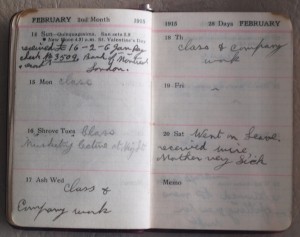 FEBRUARY 2nd Month 1915
14 Sun—Quinquagesima. Sun sets 5.9
New Moon 4.31 a.m. St. Valentine's Day
received 16-2-6 Jan Pay
check № 3509, Bank of Montreal
London.
15 Mon Class
16 Shrove Tues Class
Musketry Lecture at Night
17 Ash Wed
Class &
Company work
1915 28 Days FEBRUARY
18 Th
Class & Company
work
19 Fri
20 Sat Went on Leave.
received wire
Mother very Sick
Memo